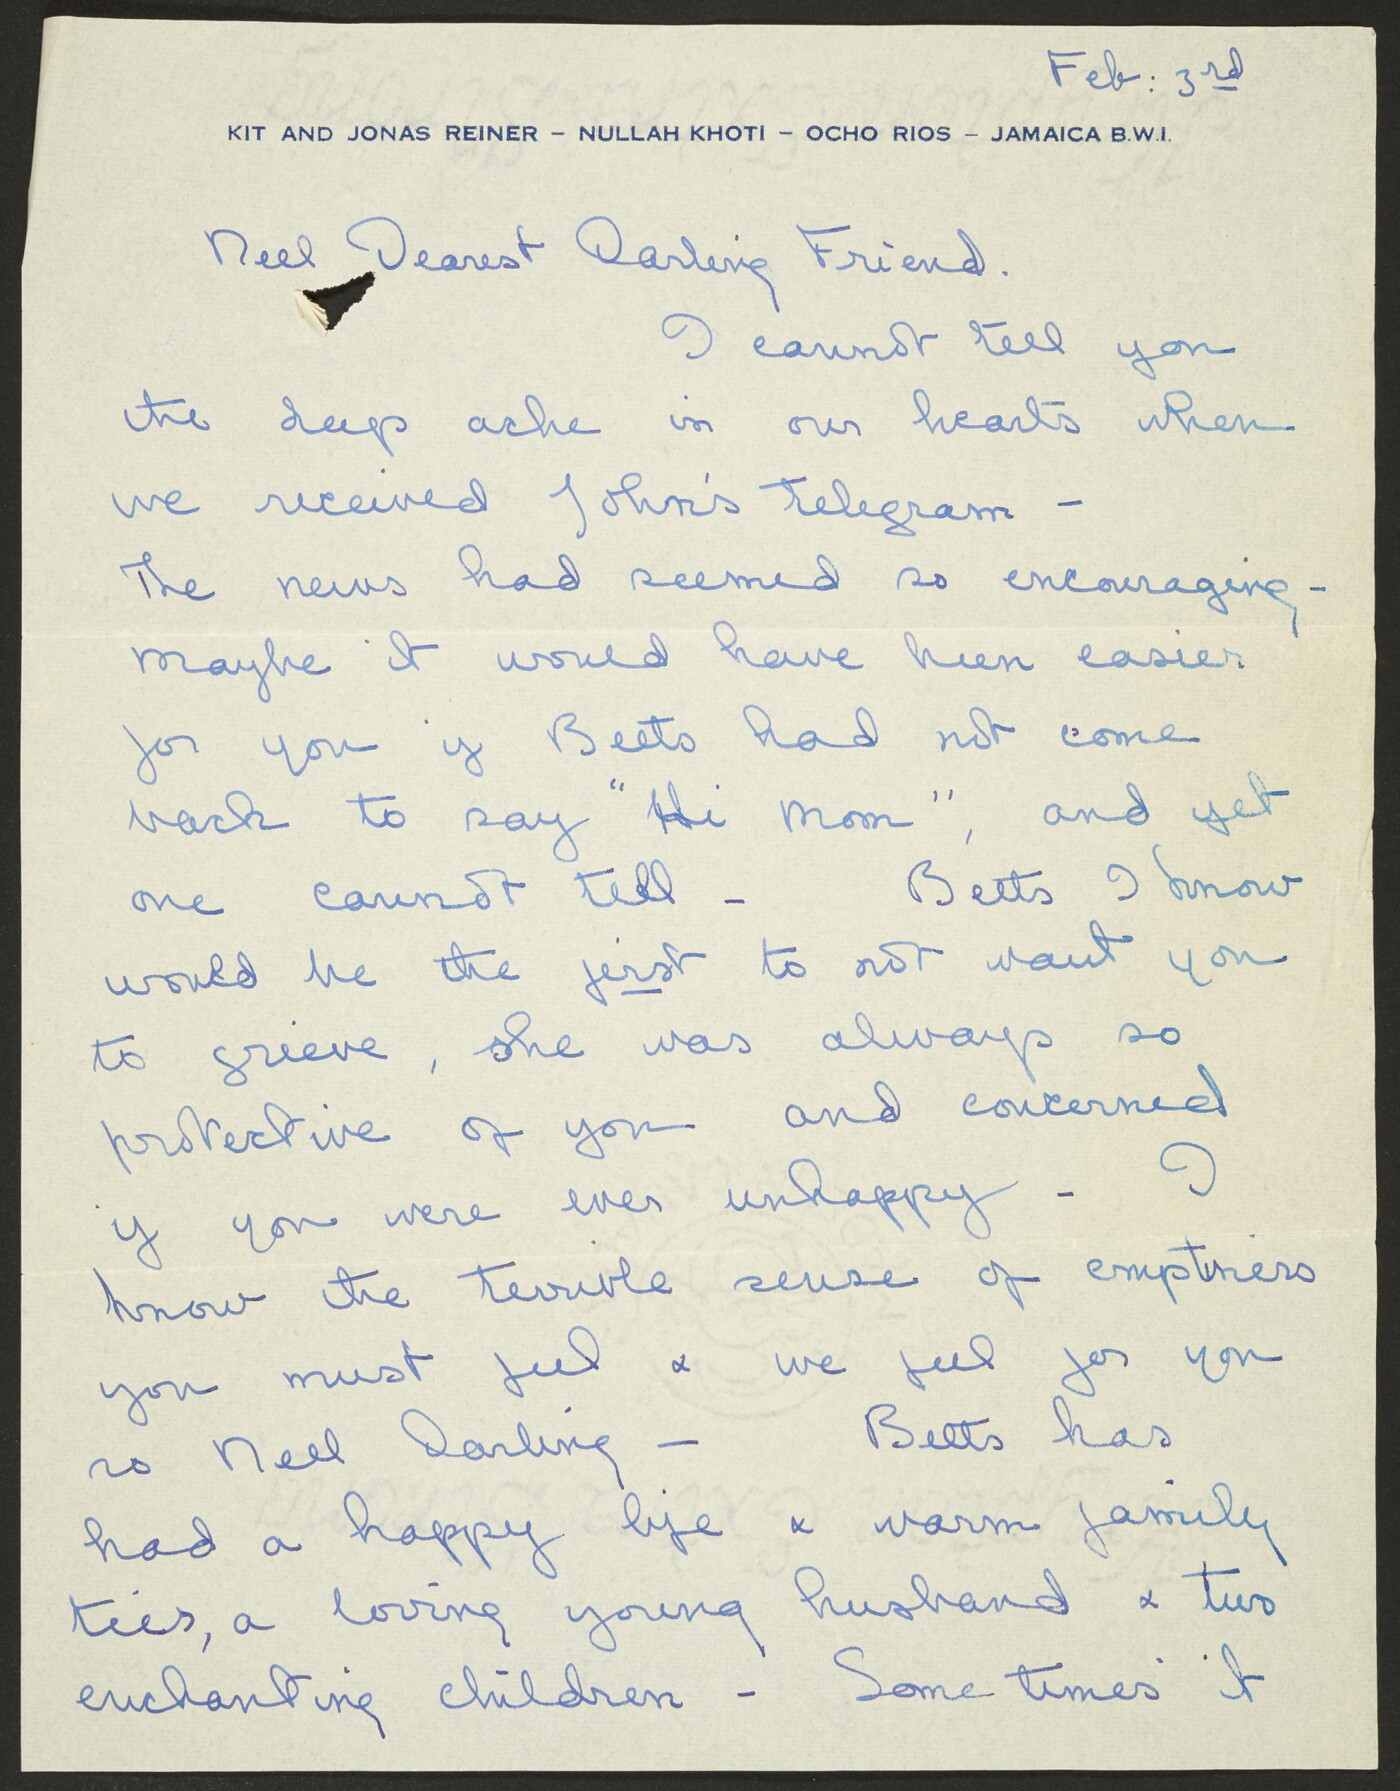 Feb: 3rd
KIT AND JONAS REINER – NULLAH KHOTI – OCHO RIOS – JAMAICA B.W.I.
Neel Dearest Darling Friend.
I cannot tell you
the deep ache in our hearts when
we received John's telegram –
The news had seemed so encouraging –
maybe it would have been easier
for you if Betts had not come
back to say "Hi Mom", and yet
one cannot tell – Betts I know
would be the first to not want you
to grieve, she was always so
protective of you and concerned
if you were ever unhappy – I
know the terrible sense of emptiness
you must feel & we feel for you
so Neel Darling – Betts has
had a happy life & warm family
ties, a loving young husband & two
enchanting children – Some times it